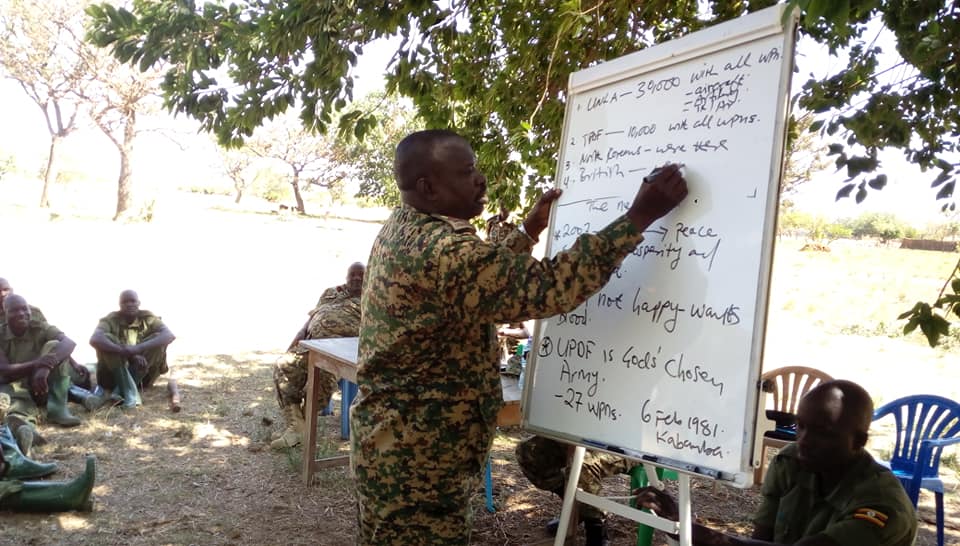 1. UNLA — 30,000 with all wpns.
2. TPDF — 10,000 with all wpns.
3 North Koreans — were there
4. British —
The
* 2002 → Peace
prosperity and
not happy wants
blood.
* UPDF is Gods' Chosen
Army.
- 27 wpns. 6 Feb 1981.
Kabamba.